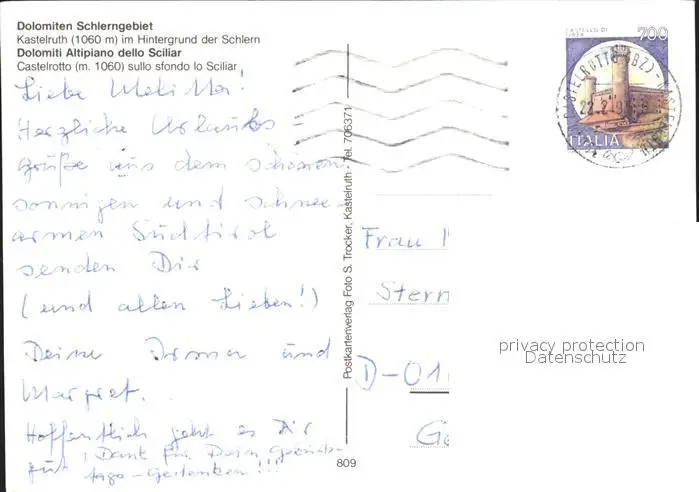 Dolomiten Schlerngebiet
Kastelruth (1060 m) im Hintergrund der Schlern
Dolomiti Altipiano dello Sciliar
Castelrotto (m. 1060) sullo sfondo lo Sciliar
Liebe Melitta!
Herzliche Urlaubs
grüße aus dem schönen
sonnigen und schnee-
armen Südtirol
senden Dir
(und allen Lieben!)
Deine Irma und
Margret.
Hoffentlich geht es Dir
gut! Dank für Dein Geburts-
tags-Gedenken!!!
Postkartenverlag Foto S. Trocker, Kastelruth - Tel. 706371
809
CASTELLO DI
700
ITALIA
CASTELROTTO (BZ)
Frau
Stern
D-01
privacy protection
Datenschutz